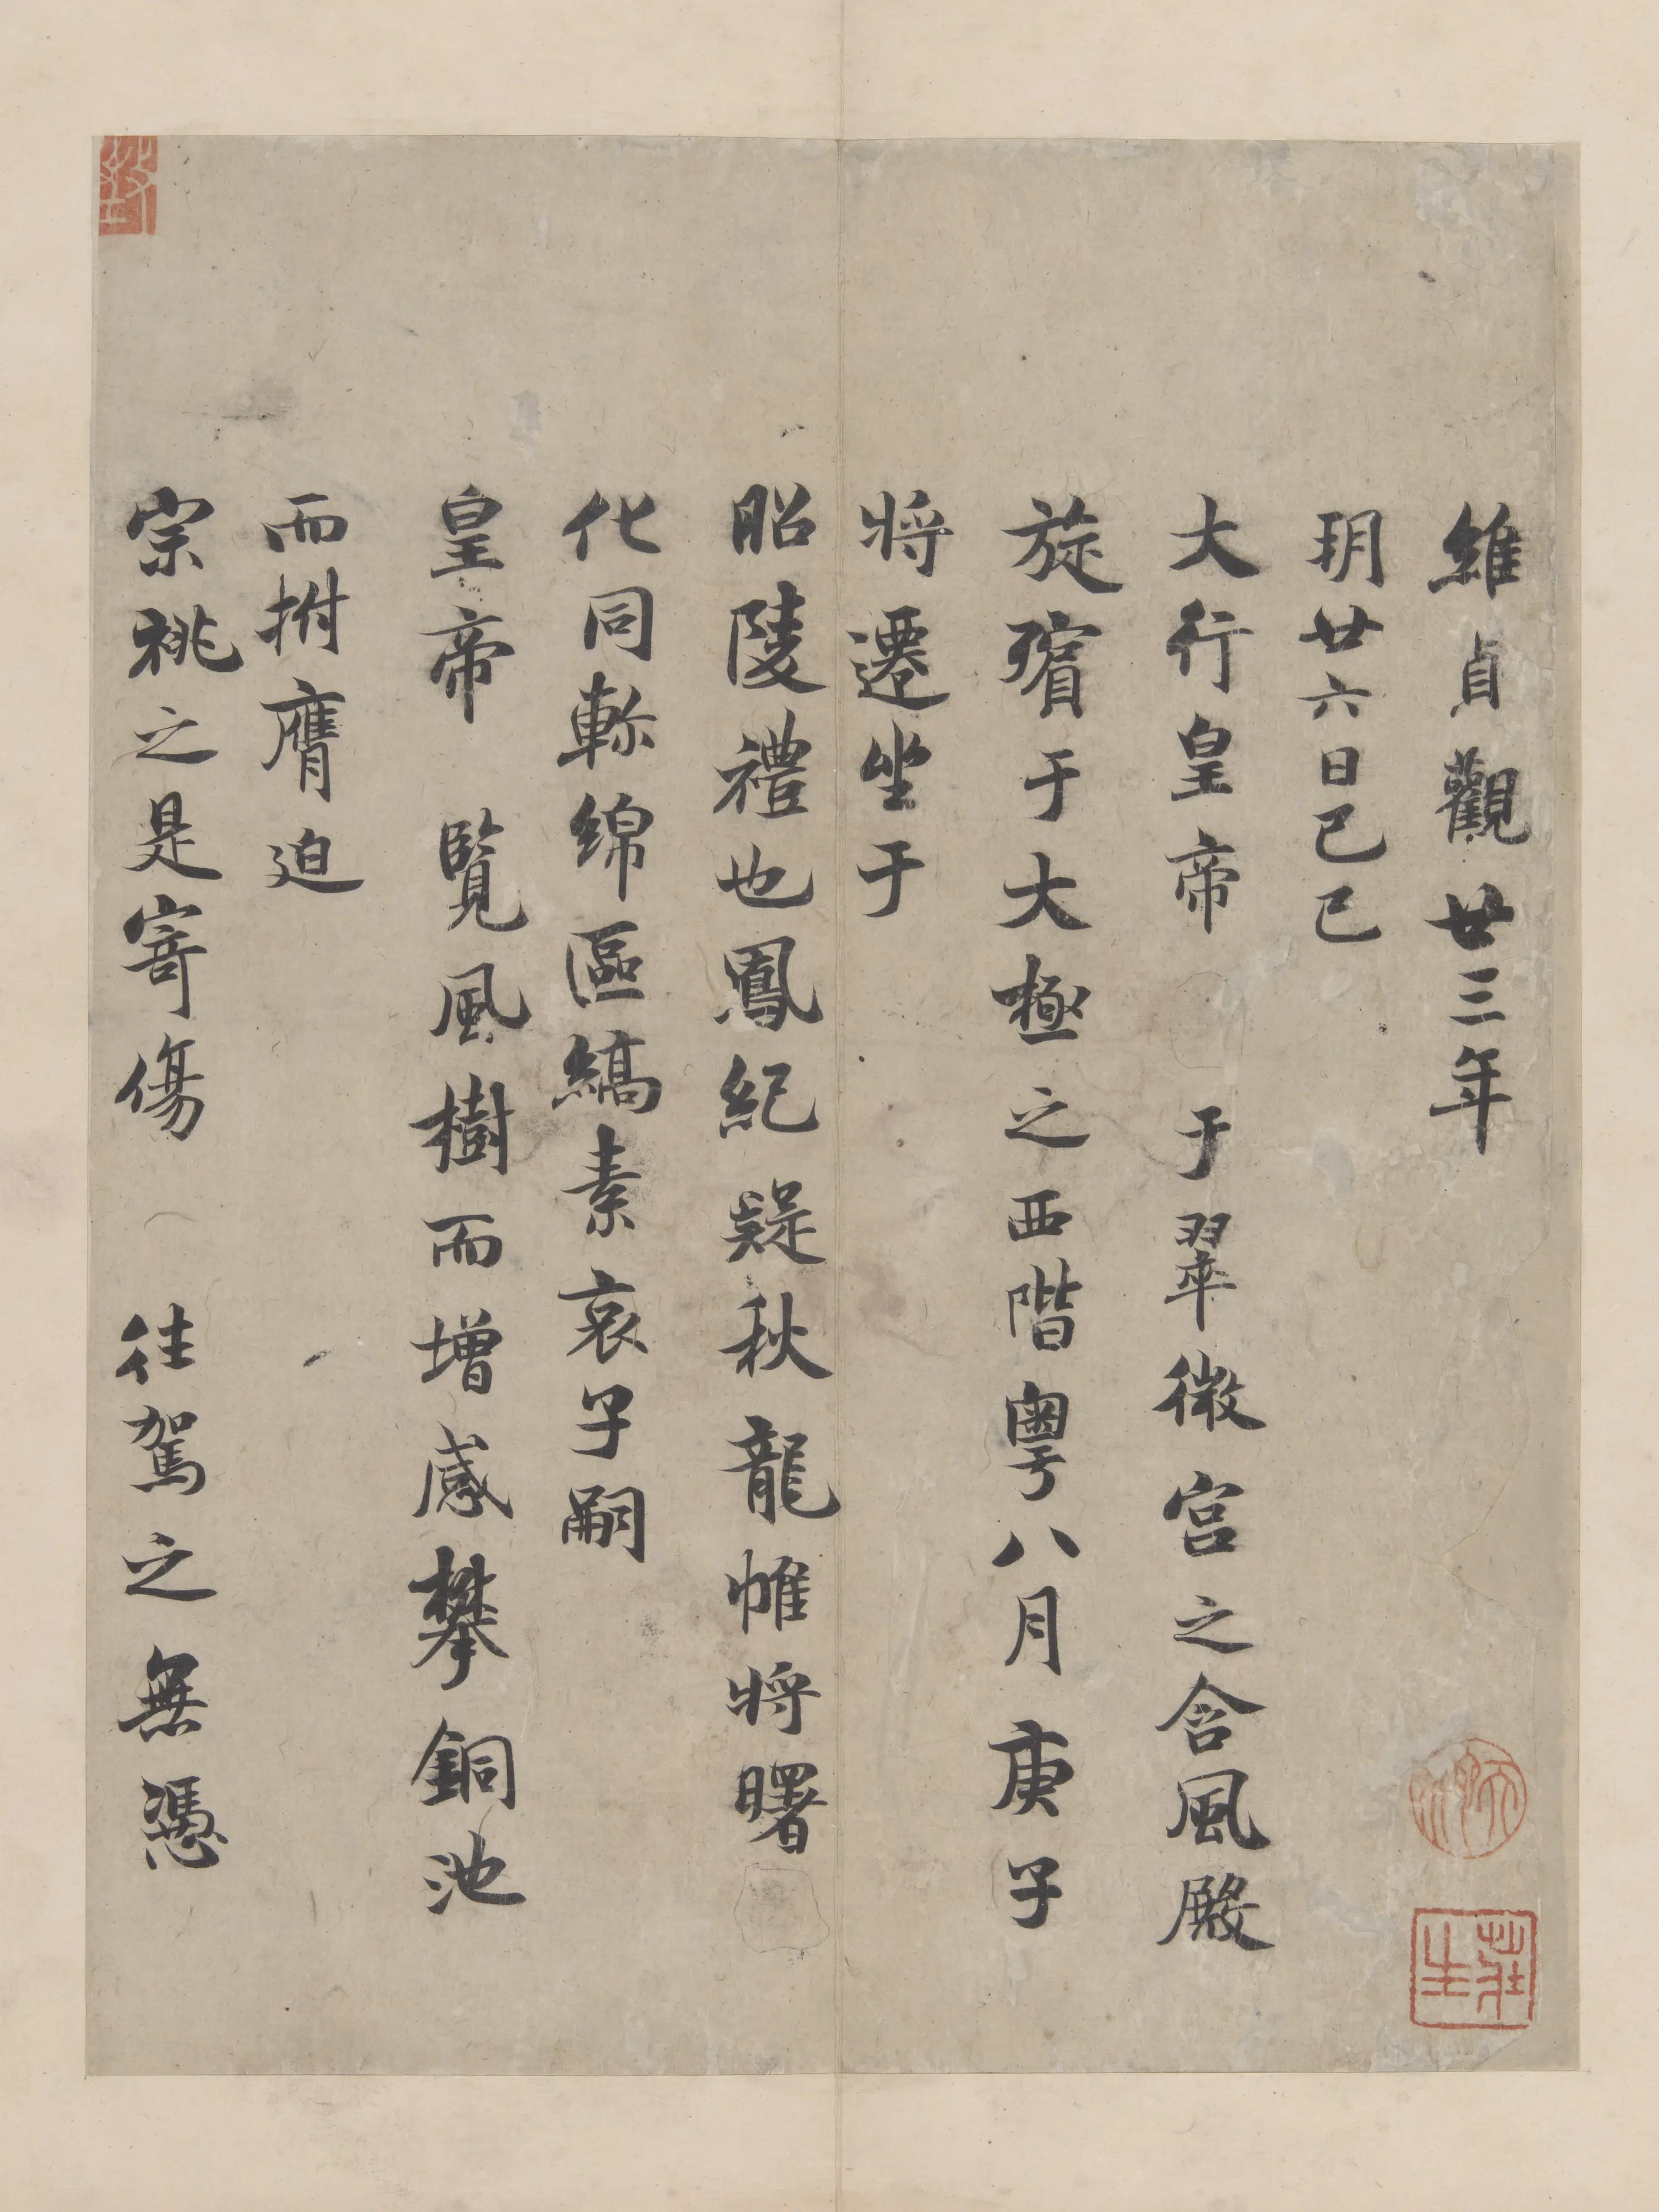 維貞觀廿三年
玥廿六日己巳
大行皇帝 于翠微宮之含風殿
旋殯于大極之西階粵八月庚子
将遷坐于
昭陵禮也鳳紀疑秋龍帷将曙
化同軫綿區縞素哀子嗣
皇帝 覧風樹而增感攀銅池
而拊膺迫
宗祧之是寄傷 往駕之無憑